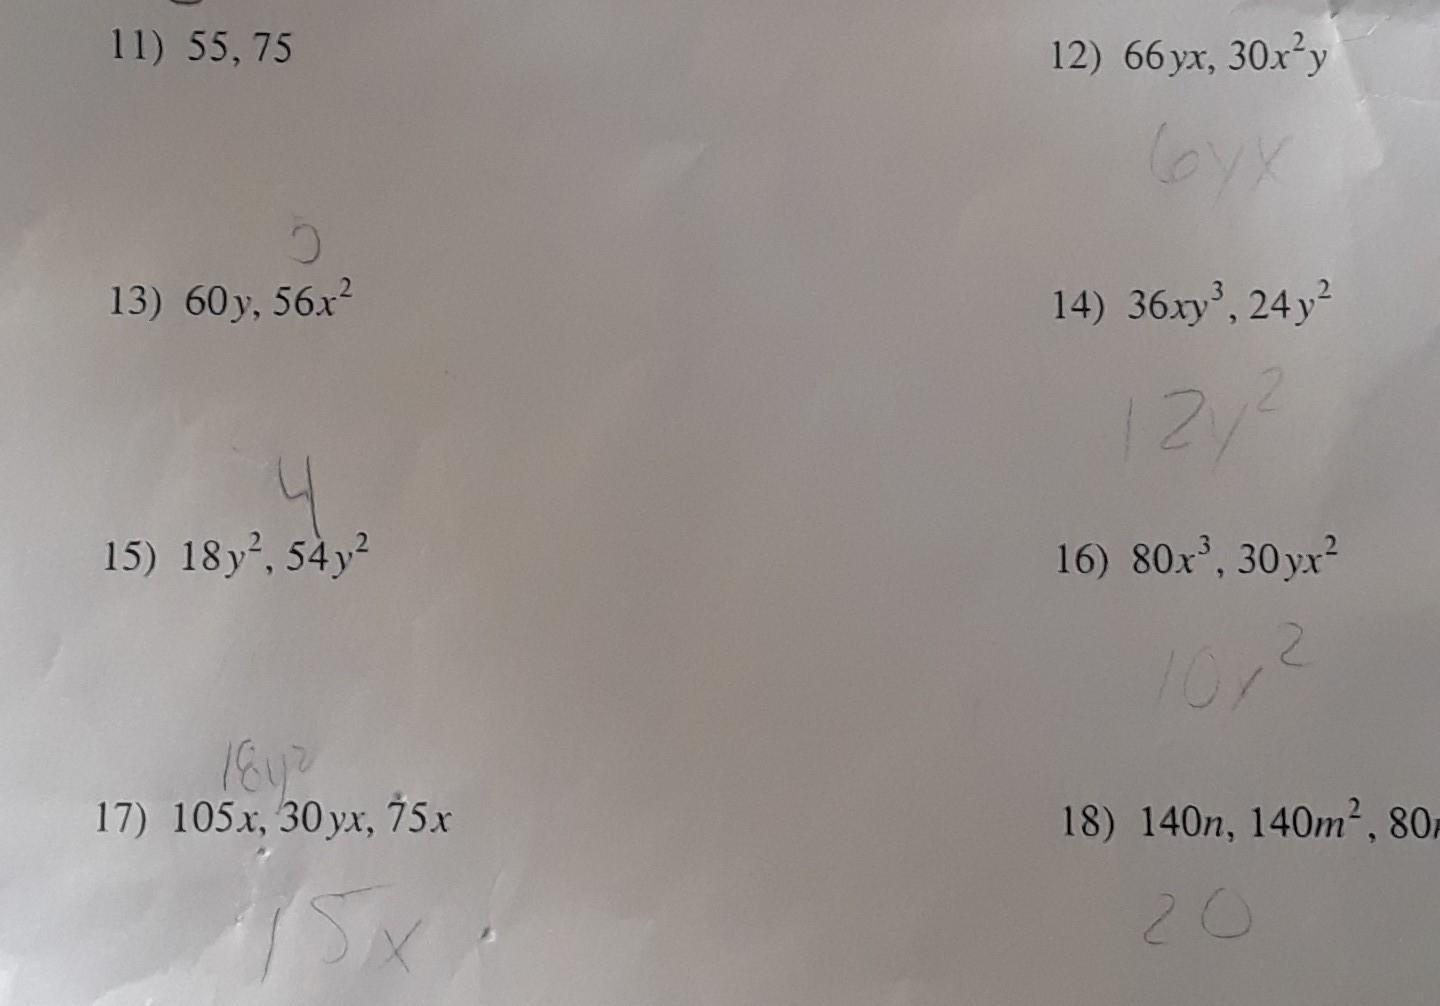 11) 55, 75
12) 66yx, 30x²y
6yx
5
13) 60y, 56x²
14) 36xy³, 24y²
12y²
4
15) 18y², 54y²
16) 80x³, 30yx²
10x²
18y²
17) 105x, 30yx, 75x
18) 140n, 140m², 80
15x
20